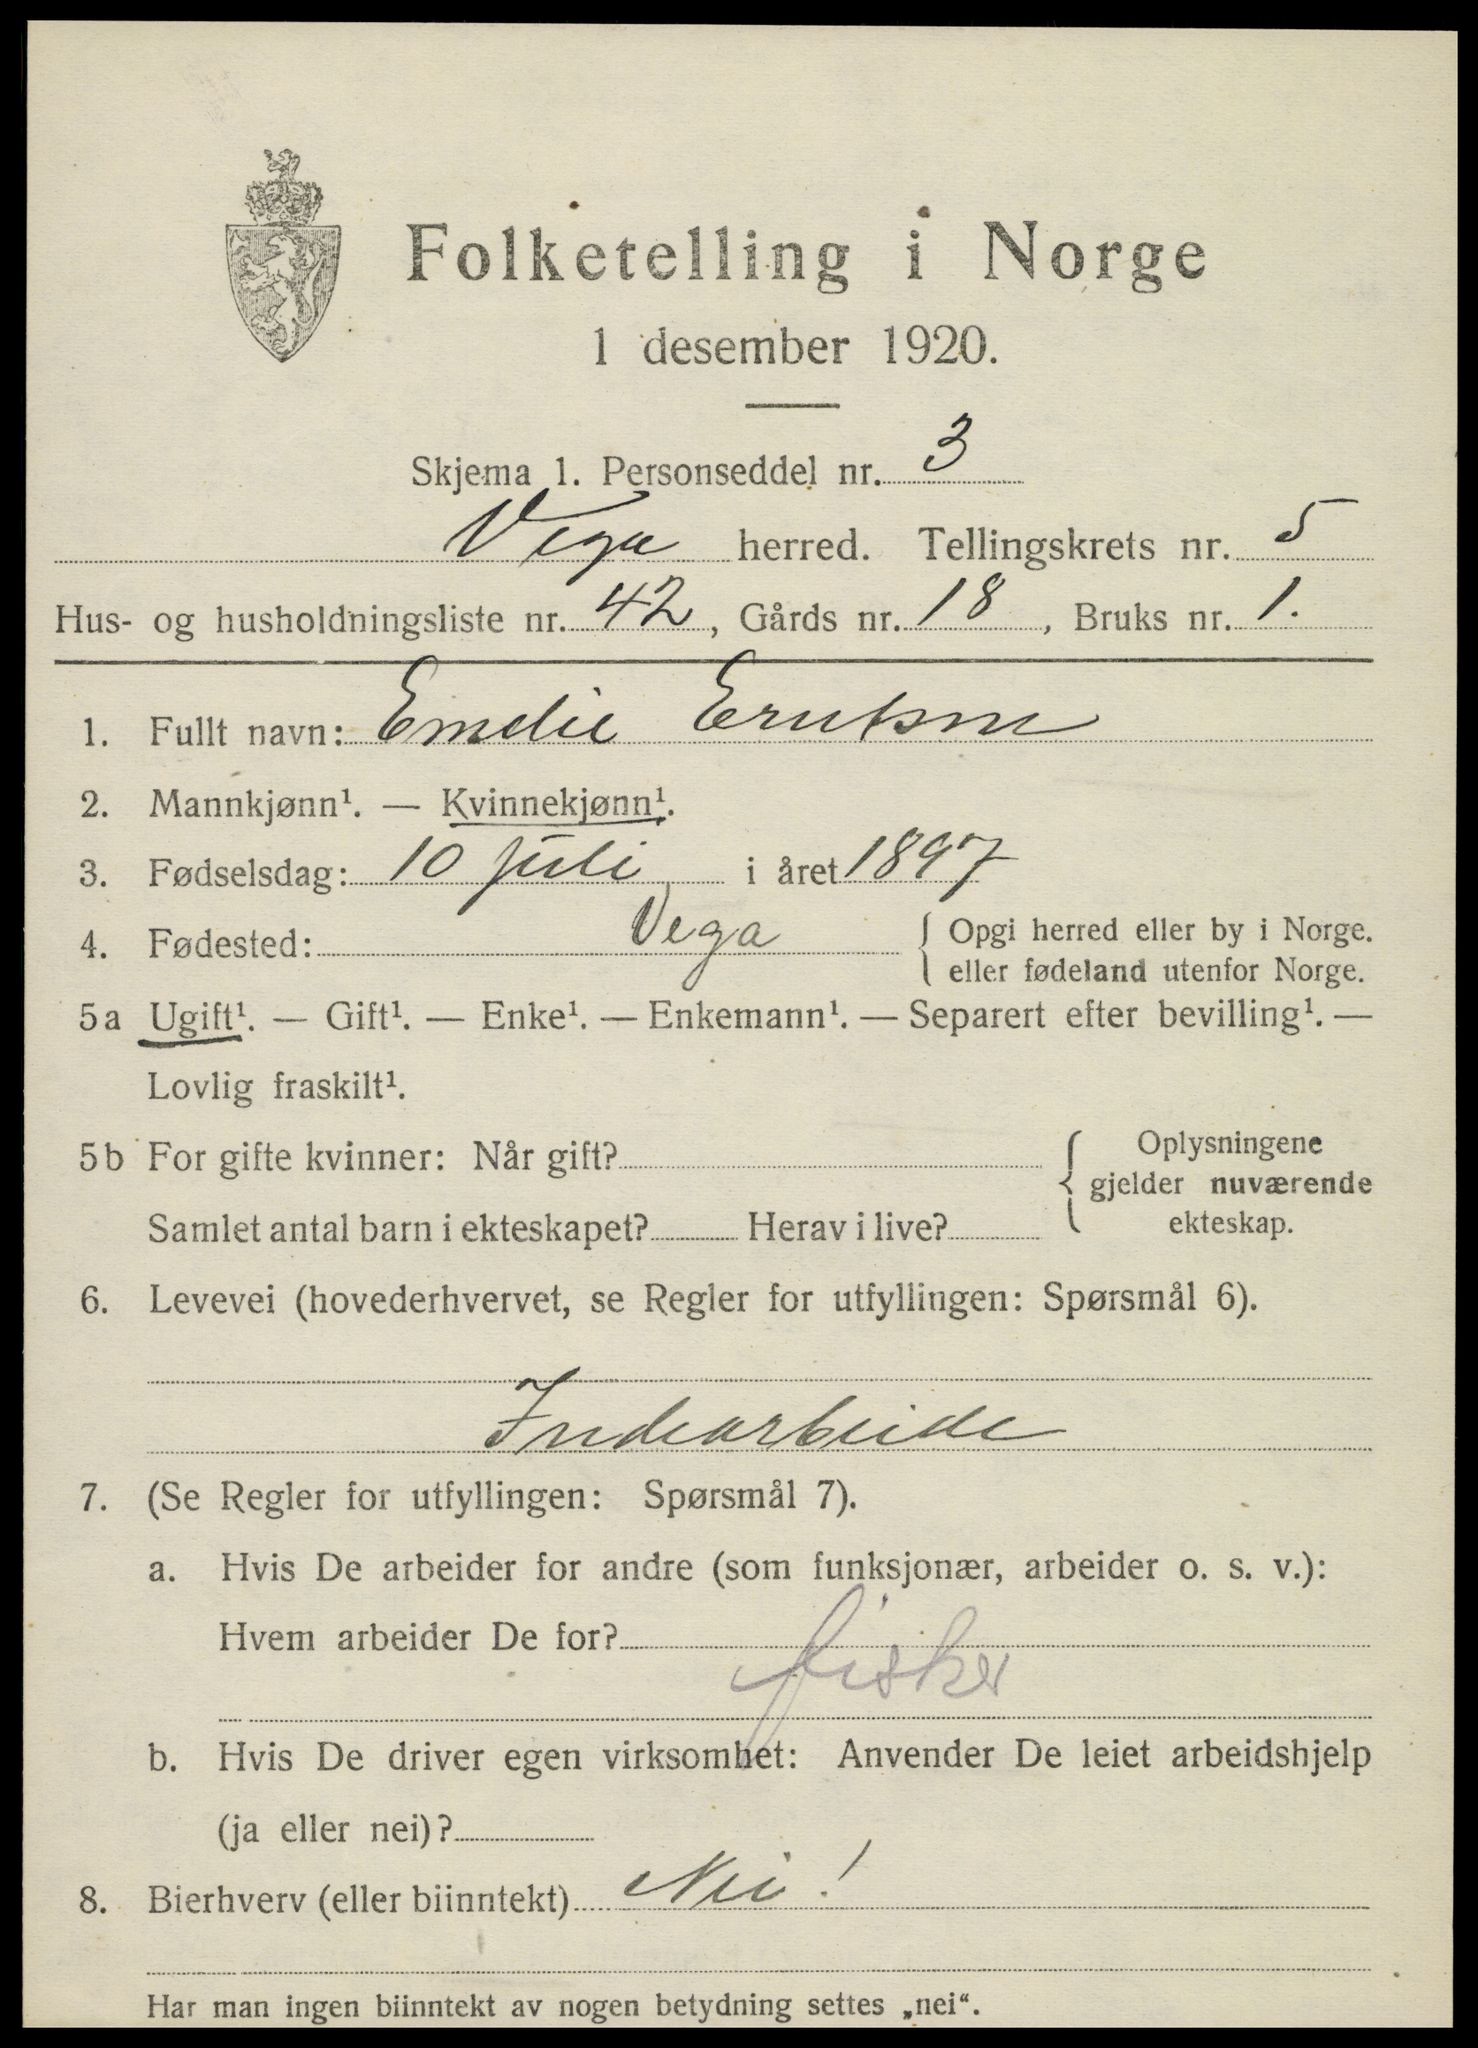 Folketelling i Norge
1 desember 1920.
Skjema 1. Personseddel nr. 3
Vega herred. Tellingskrets nr. 5
Hus- og husholdningsliste nr. 42, Gårds nr. 18, Bruks nr. 1.
1. Fullt navn: Emelie Eriksen
2. Mannkjønn¹. — Kvinnekjønn¹.
3. Fødselsdag: 10 juli i året 1897
4. Fødested: Vega { Opgi herred eller by i Norge.
eller fødeland utenfor Norge.
5a Ugift¹. — Gift¹. — Enke¹. — Enkemann¹. — Separert efter bevilling¹. —
Lovlig fraskilt¹.
5b For gifte kvinner: Når gift? { Oplysningene
gjelder nuværende
Samlet antal barn i ekteskapet? Herav i live? ekteskap.
6. Levevei (hovederhvervet, se Regler for utfyllingen: Spørsmål 6).
Indearbeide
7. (Se Regler for utfyllingen: Spørsmål 7).
a. Hvis De arbeider for andre (som funksjonær, arbeider o. s. v.):
Hvem arbeider De for?
fisker
b. Hvis De driver egen virksomhet: Anvender De leiet arbeidshjelp
(ja eller nei)?
8. Bierhverv (eller biinntekt) Nei!
Har man ingen biinntekt av nogen betydning settes „nei“.